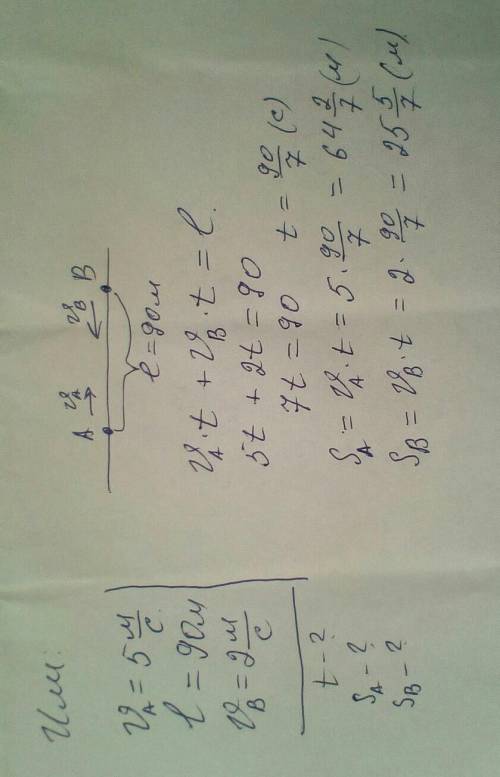 Или:
𝜗_A = 5 м/с
l = 90м
𝜗_B = 2 м/с
t - ?
S_A - ?
S_B - ?
A 𝜗_A→ 𝜗_B← B
l = 90м
𝜗_A · t + 𝜗_B · t = l.
5t + 2t = 90
7t = 90 t = 90/7 (с)
S_A = 𝜗_A · t = 5 · 90/7 = 64 2/7 (м)
S_B = 𝜗_B · t = 2 · 90/7 = 25 5/7 (м)